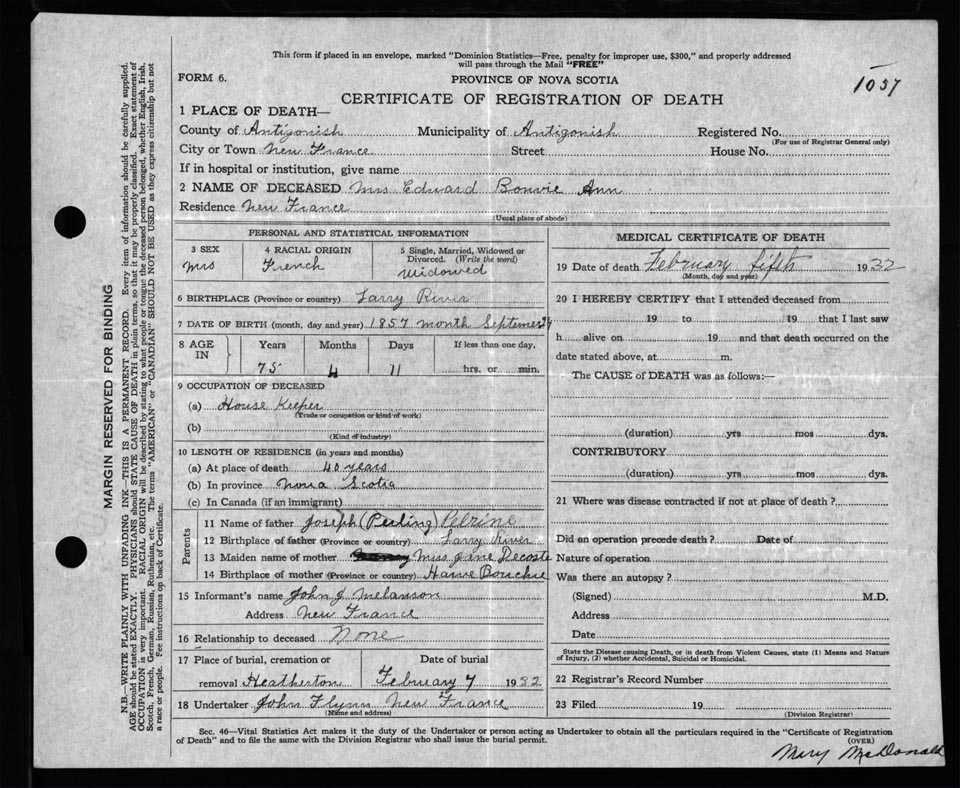 This form if placed in an envelope, marked "Dominion Statistics—Free, penalty for improper use, $300," and properly addressed
will pass through the Mail "FREE"
FORM 6.
PROVINCE OF NOVA SCOTIA
1037
CERTIFICATE OF REGISTRATION OF DEATH
1 PLACE OF DEATH—
County of Antigonish Municipality of Antigonish Registered No.
(For use of Registrar General only)
City or Town New France Street House No.
If in hospital or institution, give name
2 NAME OF DECEASED Mrs Edward Bonvie Ann
Residence New France
(Usual place of abode)
PERSONAL AND STATISTICAL INFORMATION
3 SEX 4 RACIAL ORIGIN 5 Single, Married, Widowed or
Divorced. (Write the word)
Mrs French widowed
6 BIRTHPLACE (Province or country) Larry River
7 DATE OF BIRTH (month, day and year) 1857 month Septemer 24
8 AGE IN Years Months Days If less than one day,
75 4 11 hrs. or min.
9 OCCUPATION OF DECEASED
(a) House Keeper
(Trade or occupation or kind of work)
(b)
(Kind of industry)
10 LENGTH OF RESIDENCE (in years and months)
(a) At place of death 40 years
(b) In province Nova Scotia
(c) In Canada (if an immigrant)
Parents
11 Name of father Joseph (Perling) Pelrine
12 Birthplace of father (Province or country) Larry River
13 Maiden name of mother Miss Jane Decoste
14 Birthplace of mother (Province or country) Harve Bouchie
15 Informant's name John J Melanson
Address New France
16 Relationship to deceased None
17 Place of burial, cremation or Date of burial
removal Heatherton February 7 1932
18 Undertaker John Flynn New France
(Name and address)
MEDICAL CERTIFICATE OF DEATH
19 Date of death February fifth 1932
(Month, day and year)
20 I HEREBY CERTIFY that I attended deceased from
19 to 19 that I last saw
h alive on 19 and that death occurred on the
date stated above, at m.
The CAUSE of DEATH was as follows:—
(duration) yrs mos dys.
CONTRIBUTORY
(duration) yrs mos dys.
21 Where was disease contracted if not at place of death?
Did an operation precede death? Date of
Nature of operation
Was there an autopsy?
(Signed) M.D.
Address
Date
State the Disease causing Death, or in death from Violent Causes, state (1) Means and Nature
of Injury, (2) whether Accidental, Suicidal or Homicidal.
22 Registrar's Record Number
23 Filed 19
(Division Registrar)
Sec. 46—Vital Statistics Act makes it the duty of the Undertaker or person acting as Undertaker to obtain all the particulars required in the "Certificate of Registration
of Death" and to file the same with the Division Registrar who shall issue the burial permit.
(OVER)
Mary McDonald
MARGIN RESERVED FOR BINDING
N.B.—WRITE PLAINLY WITH UNFADING INK—THIS IS A PERMANENT RECORD. Every item of information should be carefully supplied.
AGE should be stated EXACTLY. PHYSICIANS should STATE CAUSE OF DEATH in plain terms, so that it may be properly classified. Exact statement of
OCCUPATION is very important. RACIAL ORIGIN will be described by stating to what people or tongue the deceased person belonged, whether English, Irish,
Scotch, French, German, Russian, Ruthenian, etc. The terms "AMERICAN" or "CANADIAN" SHOULD NOT BE USED as they express citizenship but not
a race or people. See instructions on back of Certificate.